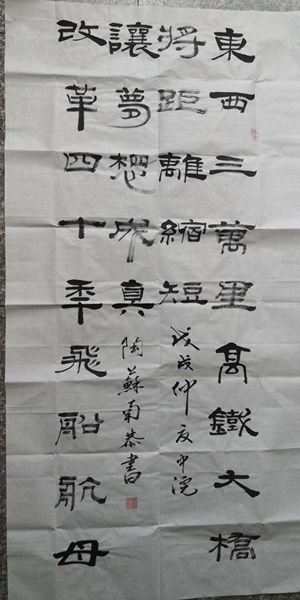 東西三萬里高鐵大橋
將距離縮短
戊戌仲夏中浣
改革四十秊飛船航母
讓夢想成真
陶蘇南恭書